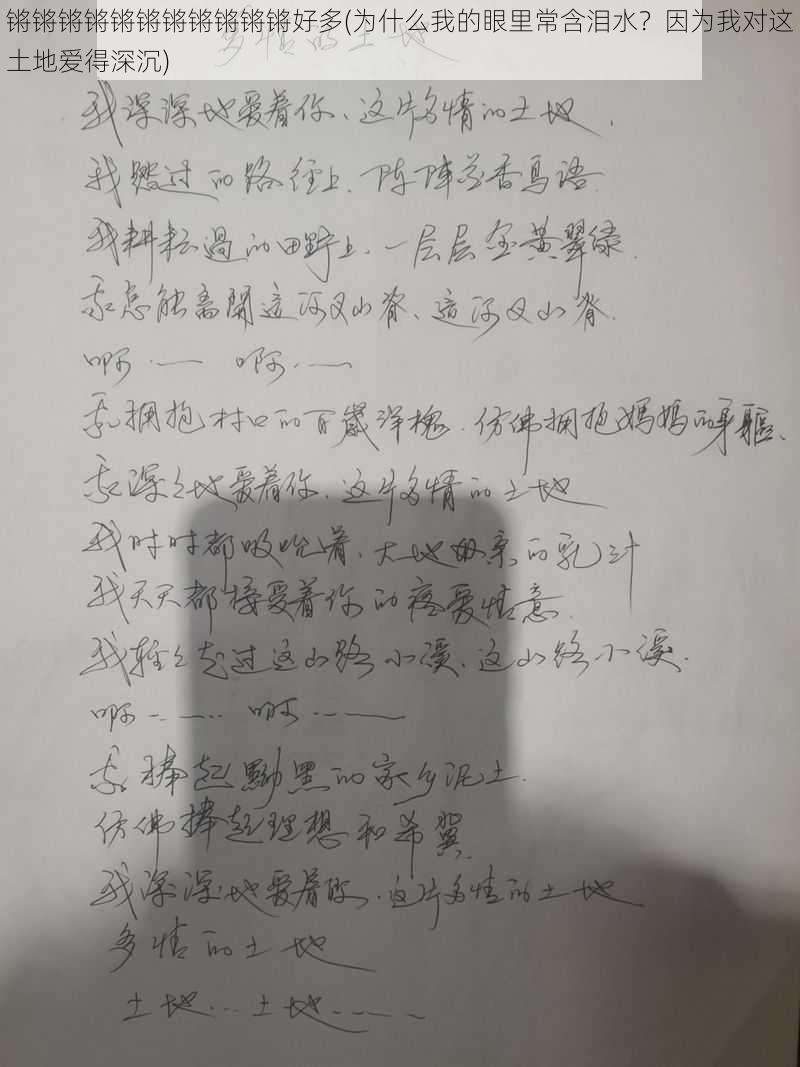 锵锵锵锵锵锵锵锵锵锵锵好多(为什么我的眼里常含泪水？因为我对这
土地爱得深沉)
多情的土地
我深深地爱着你、这片多情的土地，
我踏过的路径上、阵阵花香鸟语.
我耕耘過的田野上、一层层金黄翠绿.
我怎能离開這河叉山脊、這河叉山脊.
啊·一 啊·一一
我拥抱村口的百歲洋槐、仿佛拥抱媽媽的身軀、
我深々地爱着你、这片多情的土地
我时时都吸吮着、大地母亲的乳汁
我天天都接受着你的疼爱情意.
我轻々走过这山路小溪、这山路小溪.
啊-. 一... 啊...——
我捧起黝黑的家乡泥土.
仿佛捧起理想和希翼.
我深深地爱着你、这片多情的土地
多情的土地
土地...土地-----